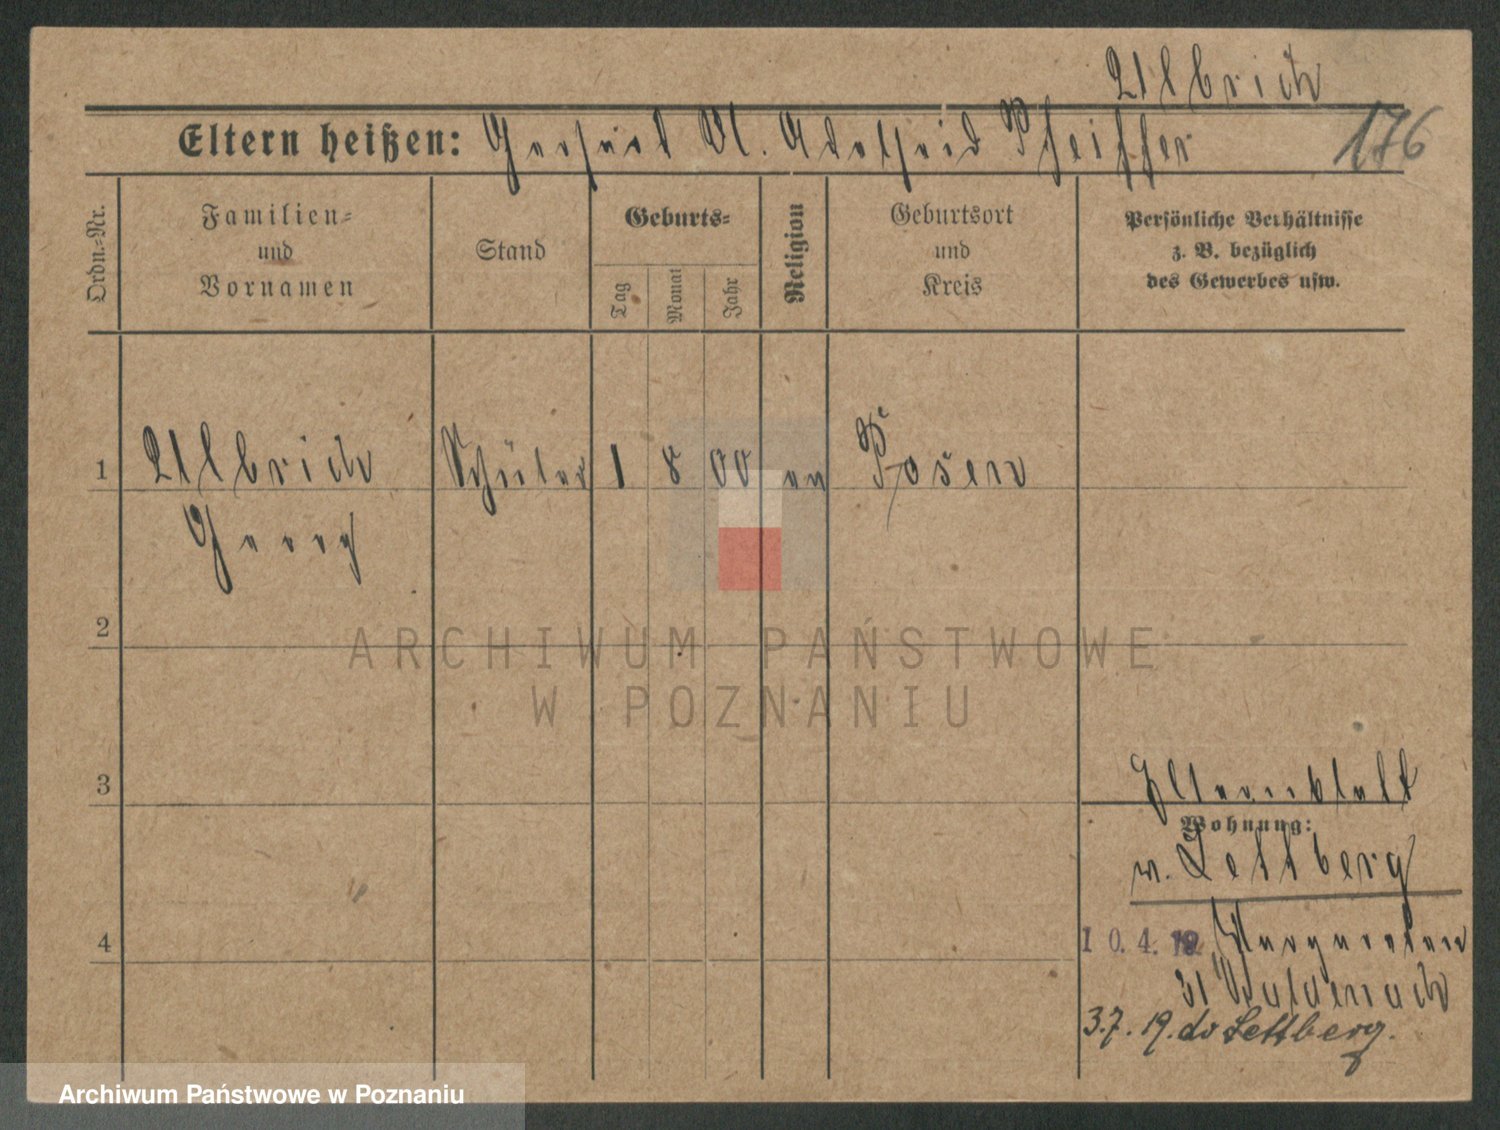 Ulbrich
Eltern heißen: Gerhard U. Adelheid Pfeiffer
176
Ordn.=Nr.
Familien=
und
Vornamen
Stand
Geburts=
Tag
Monat
Jahr
Religion
Geburtsort
und
Kreis
Persönliche Verhältnisse
z. B. bezüglich
des Gewerbes usw.
1 Ulbrich Schüler 1 8 00 ev Posen
Georg
2
ARCHIWUM PAŃSTWOWE
W POZNANIU
3
Elternblatt
Wohnung:
n. Lettberg
4
10.4.19 Margareten
3.7.19. do Lettberg.
Archiwum Państwowe w Poznaniu